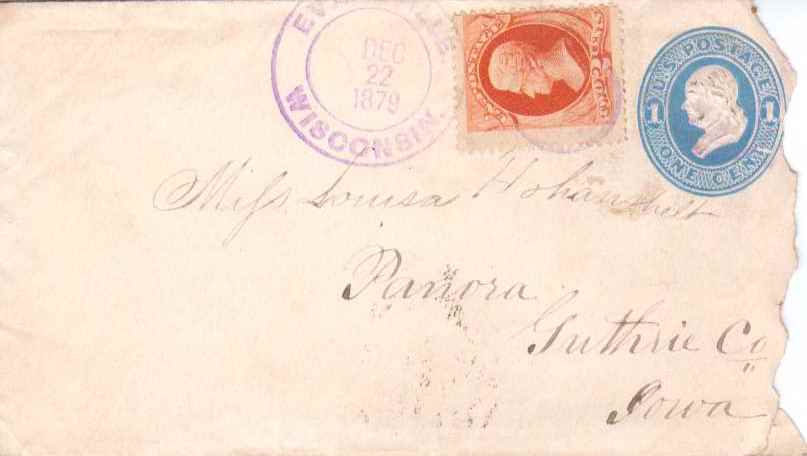 DEC
22
1879
WISCONSIN.
U.S. POSTAGE
1 1
ONE CENT
Miss Louisa
Panora
Guthrie Co
Iowa